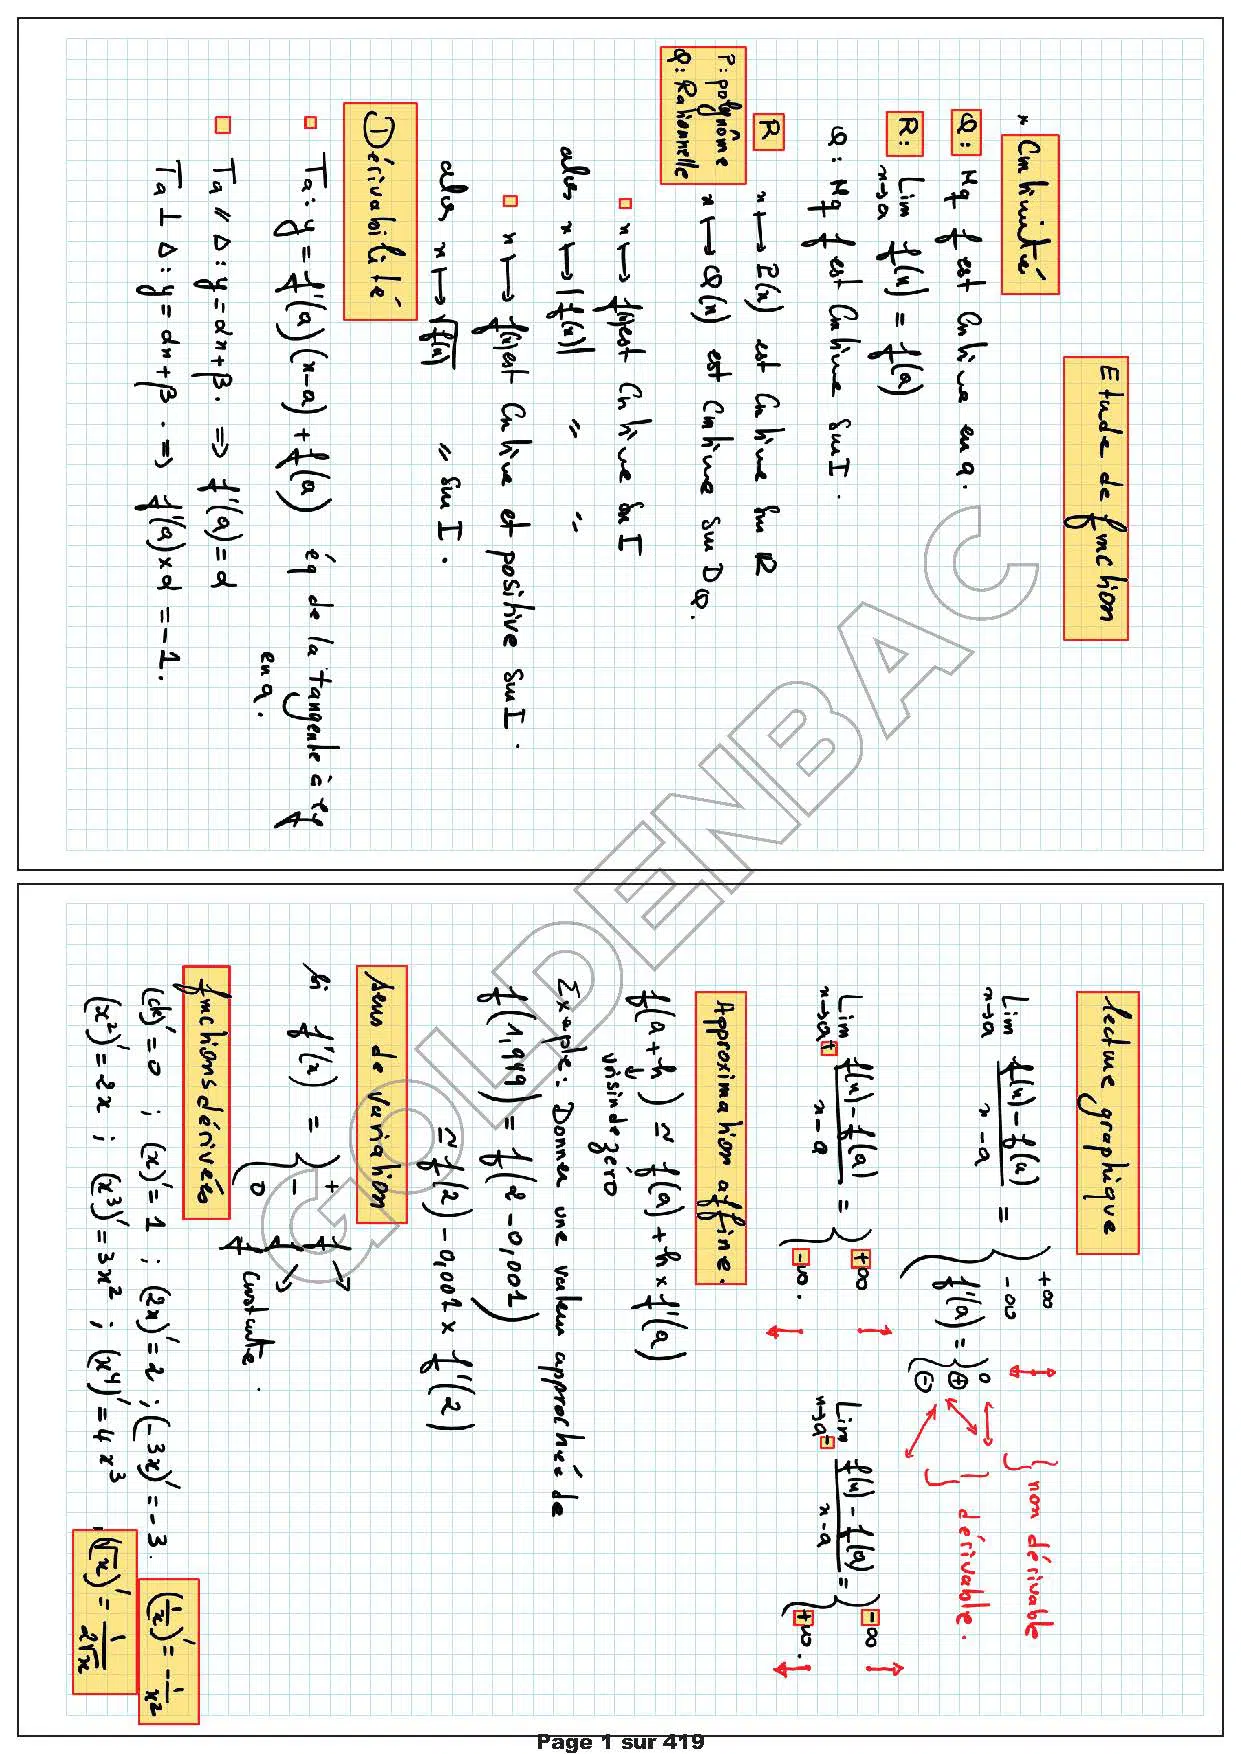 Etude de fonction
* Continuité
Q: Mq f est Continue en a.
R: Lim f(x) = f(a)
x→a
Q: Mq f est Continue sur I.
R x ⟼ P(x) est Continue sur ℝ
P: polynôme
Q: Rationnelle
x ⟼ Q(x) est Continue sur D_Q.
x ⟼ f(x) est Continue sur I
alors x ⟼ |f(x)| " "
x ⟼ f(x) est Continue et positive sur I.
alors x ⟼ √f(x) " sur I.
Dérivabilité
Ta: y = f'(a)(x-a) + f(a) éq de la tangente à ζf
en a.
Ta // Δ: y = αx+β. ⇒ f'(a) = α
Ta ⊥ Δ: y = αx+β. ⇒ f'(a) × α = -1.
lecture graphique
Lim f(x) - f(a) / x - a = { +∞ ↔ } non dérivable
x→a -∞
f'(a) = { 0 ⊕ ⊖ } dérivable.
Lim f(x) - f(a) / x - a = { +∞ -∞. Lim f(x) - f(a) / x - a = { -∞ +∞.
x→a+ x→a-
Approximation affine.
f(a+h) ≃ f(a) + h × f'(a)
voisin de zéro
Exple: Donner une valeur approchée de
f(1,999) = f(2 - 0,001)
≃ f(2) - 0,001 × f'(2)
sens de variation
si f'(x) = { + ↗
- ↘
0 constante.
fonctions dérivés
(cte)' = 0 ; (x)' = 1 ; (2x)' = 2 ; (-3x)' = -3. (1/x)' = -1/x²
(x²)' = 2x ; (x³)' = 3x² ; (x⁴)' = 4x³, (√x)' = 1/2√x
GOLDENBAC
Page 1 sur 419